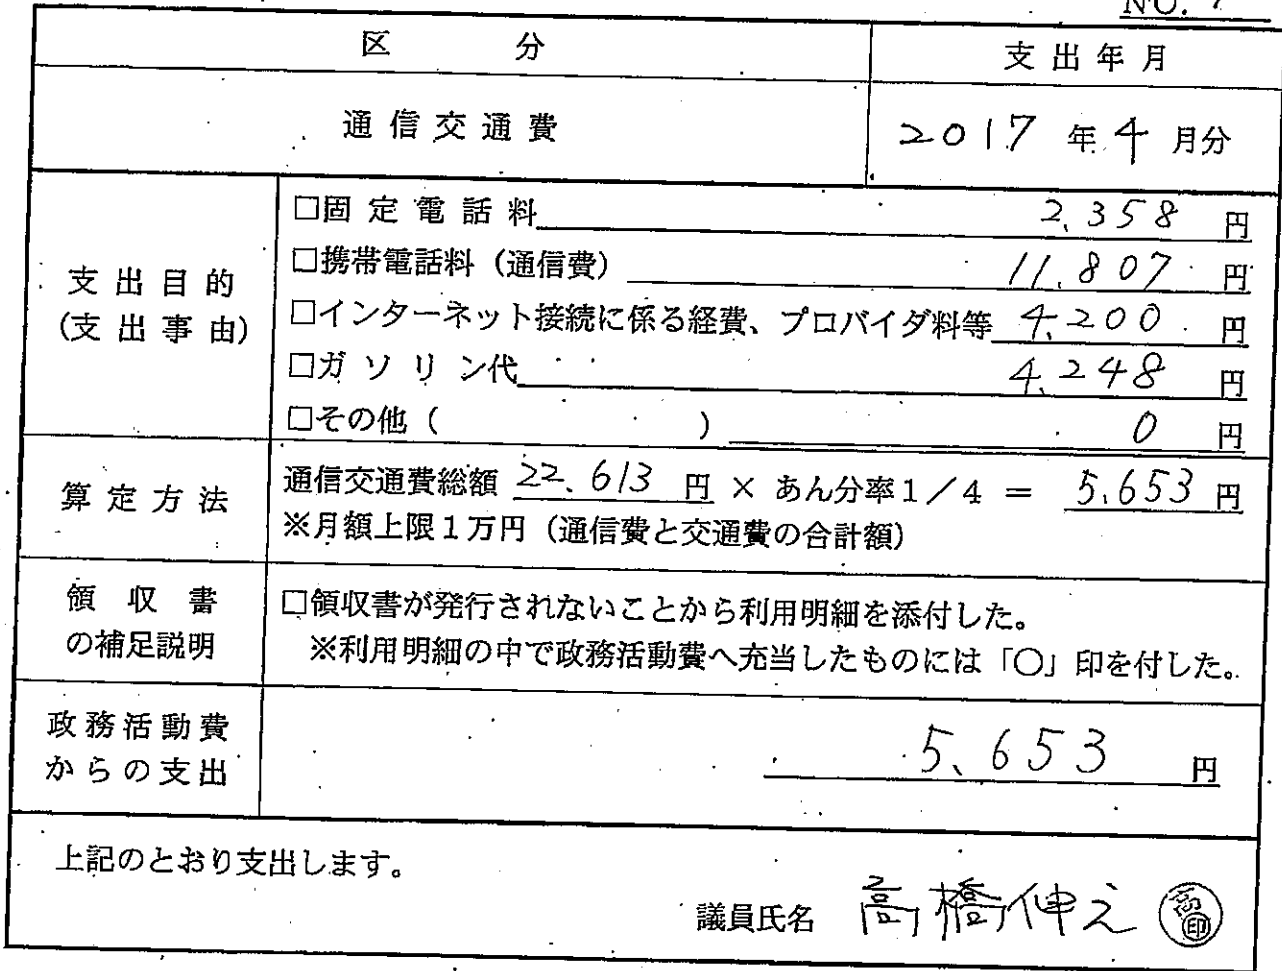 NO.
区 分
支出年月
通信交通費
2017 年 4 月分
支出目的
(支出事由)
□固定電話料 2,358 円
□携帯電話料(通信費) 11,807 円
□インターネット接続に係る経費、プロバイダ料等 4,200 円
□ガソリン代 4,248 円
□その他( ) 0 円
算定方法
通信交通費総額 22,613 円 × あん分率1/4 = 5,653 円
※月額上限1万円(通信費と交通費の合計額)
領収書
の補足説明
□領収書が発行されないことから利用明細を添付した。
※利用明細の中で政務活動費へ充当したものには「○」印を付した。
政務活動費
からの支出
5,653 円
上記のとおり支出します。
議員氏名 高橋伸之 ㊞